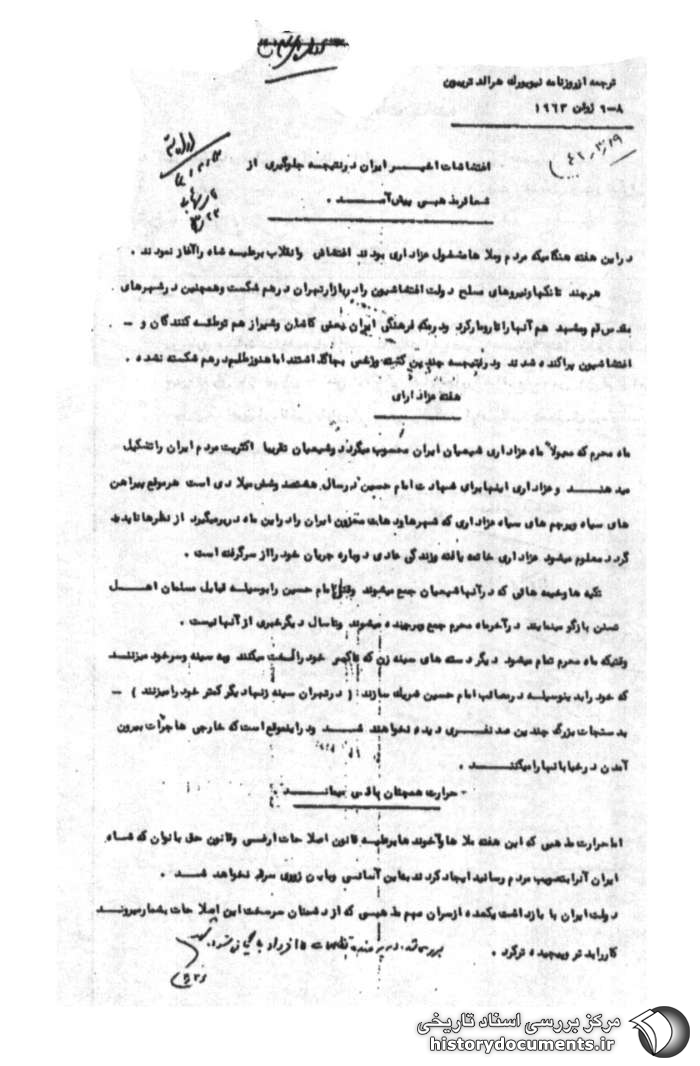 ترجمه از روزنامه نیویورک هرالد تریبون
۸-۹ ژوئن ۱۹۶۳
۴۲/۳/۱۹
اغتشاشات اخیر ایران در نتیجه جلوگیری از
شعائر مذهبی پیش آمد .
در این هفته هنگامیکه مردم و ملاها مشغول عزاداری بودند اغتشاش و انقلاب بر علیه شاه را آغاز نمودند .
هر چند تانکها و نیروهای مسلح دولت اغتشاشیون را در بازار تهران در هم شکست و همچنین در شهرهای
مقدس قم و مشهد هم آنها را تار و مار کرد و در مرکز فرهنگی ایران یعنی کاشان و شیراز هم توطئه کنندگان و -
اغتشاشیون پراکنده شدند و در نتیجه چندین کشته و زخمی بجا گذاشتند اما هنوز در هم شکسته نشده .
هفته عزادارای
ماه محرم که معمولا ماه عزاداری شیعیان ایران محسوب میگردد و شیعیان تقریبا اکثریت مردم ایران را تشکیل
میدهند و عزاداری اینها برای شهادت امام حسین در سال هشتصد و شش میلادی است هر موقع پیراهن
های سیاه و پرچم های سیاه عزاداری که شهرها و دهات محزون ایران را در این ماه در بر میگیرد از نظرها ناپدید
گردد معلوم میشود عزاداری خاتمه یافته و زندگی عادی دوباره جریان خود را از سر گرفته است .
تکیه ها و خیمه هائی که در آنها شیعیان جمع میشوند و قتل امام حسین را بوسیله قبایل مسلمان اهل
تسنن بازگو مینمایند در آخر ماه محرم جمع و برچیده میشوند و تا سال دیگر خبری از آنها نیست .
وقتیکه ماه محرم تمام میشود دیگر دسته های سینه زن که تا کمر خود را لخت میکنند و به سینه و سر خود میزنند
که خود را بدینوسیله در مصائب امام حسین شریک سازند : ( در تهران سینه زنها دیگر کمتر خود را میزنند ) -
بدستجات بزرگ چندین صد نفری دیده نخواهند شد و در اینموقع است که خارجی ها جرأت بیرون
آمدن در خیابانها را میکنند .
- حرارت همچنان باقی میماند .
اما حرارت مذهبی که این هفته ملاها و آخوندها بر علیه قانون اصلاحات ارضی و قانون حق بانوان که شاه
ایران آنرا بتصویب مردم رسانید ایجاد کردند باین آسانی و باین زودی سرد نخواهد شد .
دولت ایران با بازداشت یکعده از سران مهم مذهبی که از دشمنان سرسخت این اصلاحات بشمار میروند
کار را بدتر و پیچیده تر کرد .
مرکز بررسی اسناد تاریخی
historydocuments.ir